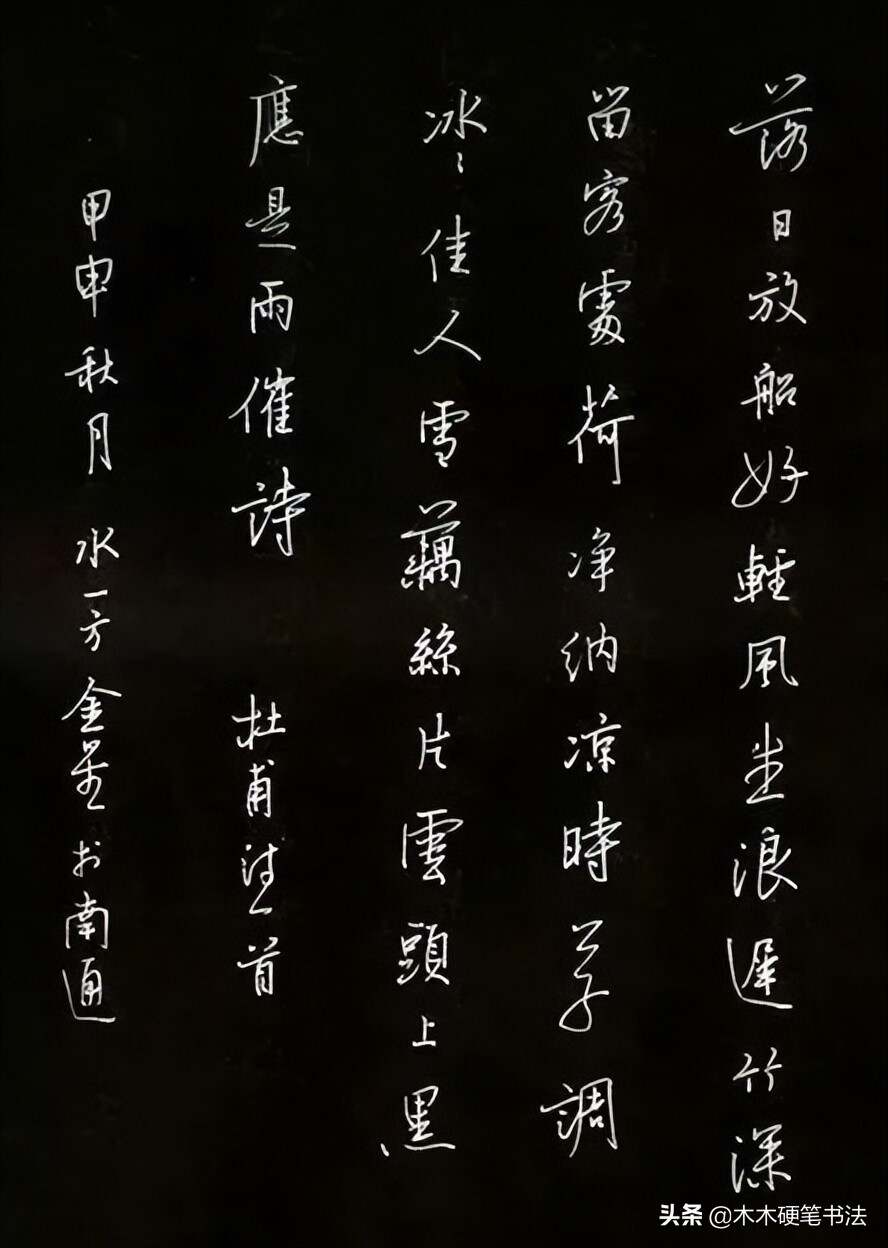 落日放船好輕風生浪遲竹深
留客處荷净纳凉時公子調
冰〻佳人雪藕絲片雲頭上黑
應是雨催詩 杜甫詩一首
甲申秋月 水一方金於南通
头条 @木木硬笔书法